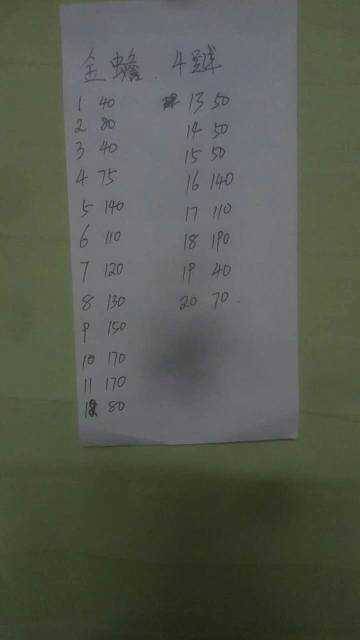 金蟾 4號
1 40
2 80
3 40
4 75
5 140
6 110
7 120
8 130
9 150
10 170
11 170
12 80
13 50
14 50
15 50
16 140
17 110
18 190
19 40
20 70